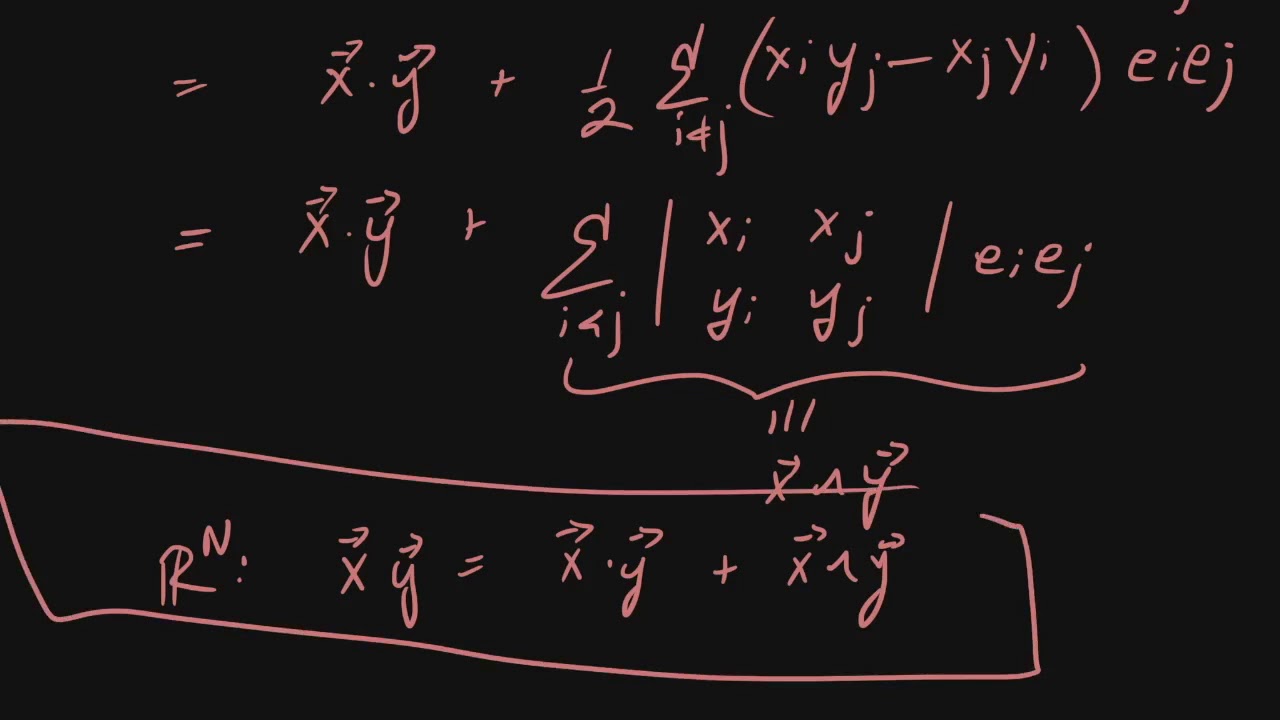 = x⃗ · y⃗ + 1/2 ∑_{i≠j} (x_i y_j − x_j y_i) e_i e_j
= x⃗ · y⃗ + ∑_{i<j} | x_i x_j ; y_i y_j | e_i e_j
|||
x⃗ ∧ y⃗
ℝ^N: x⃗ y⃗ = x⃗ · y⃗ + x⃗ ∧ y⃗